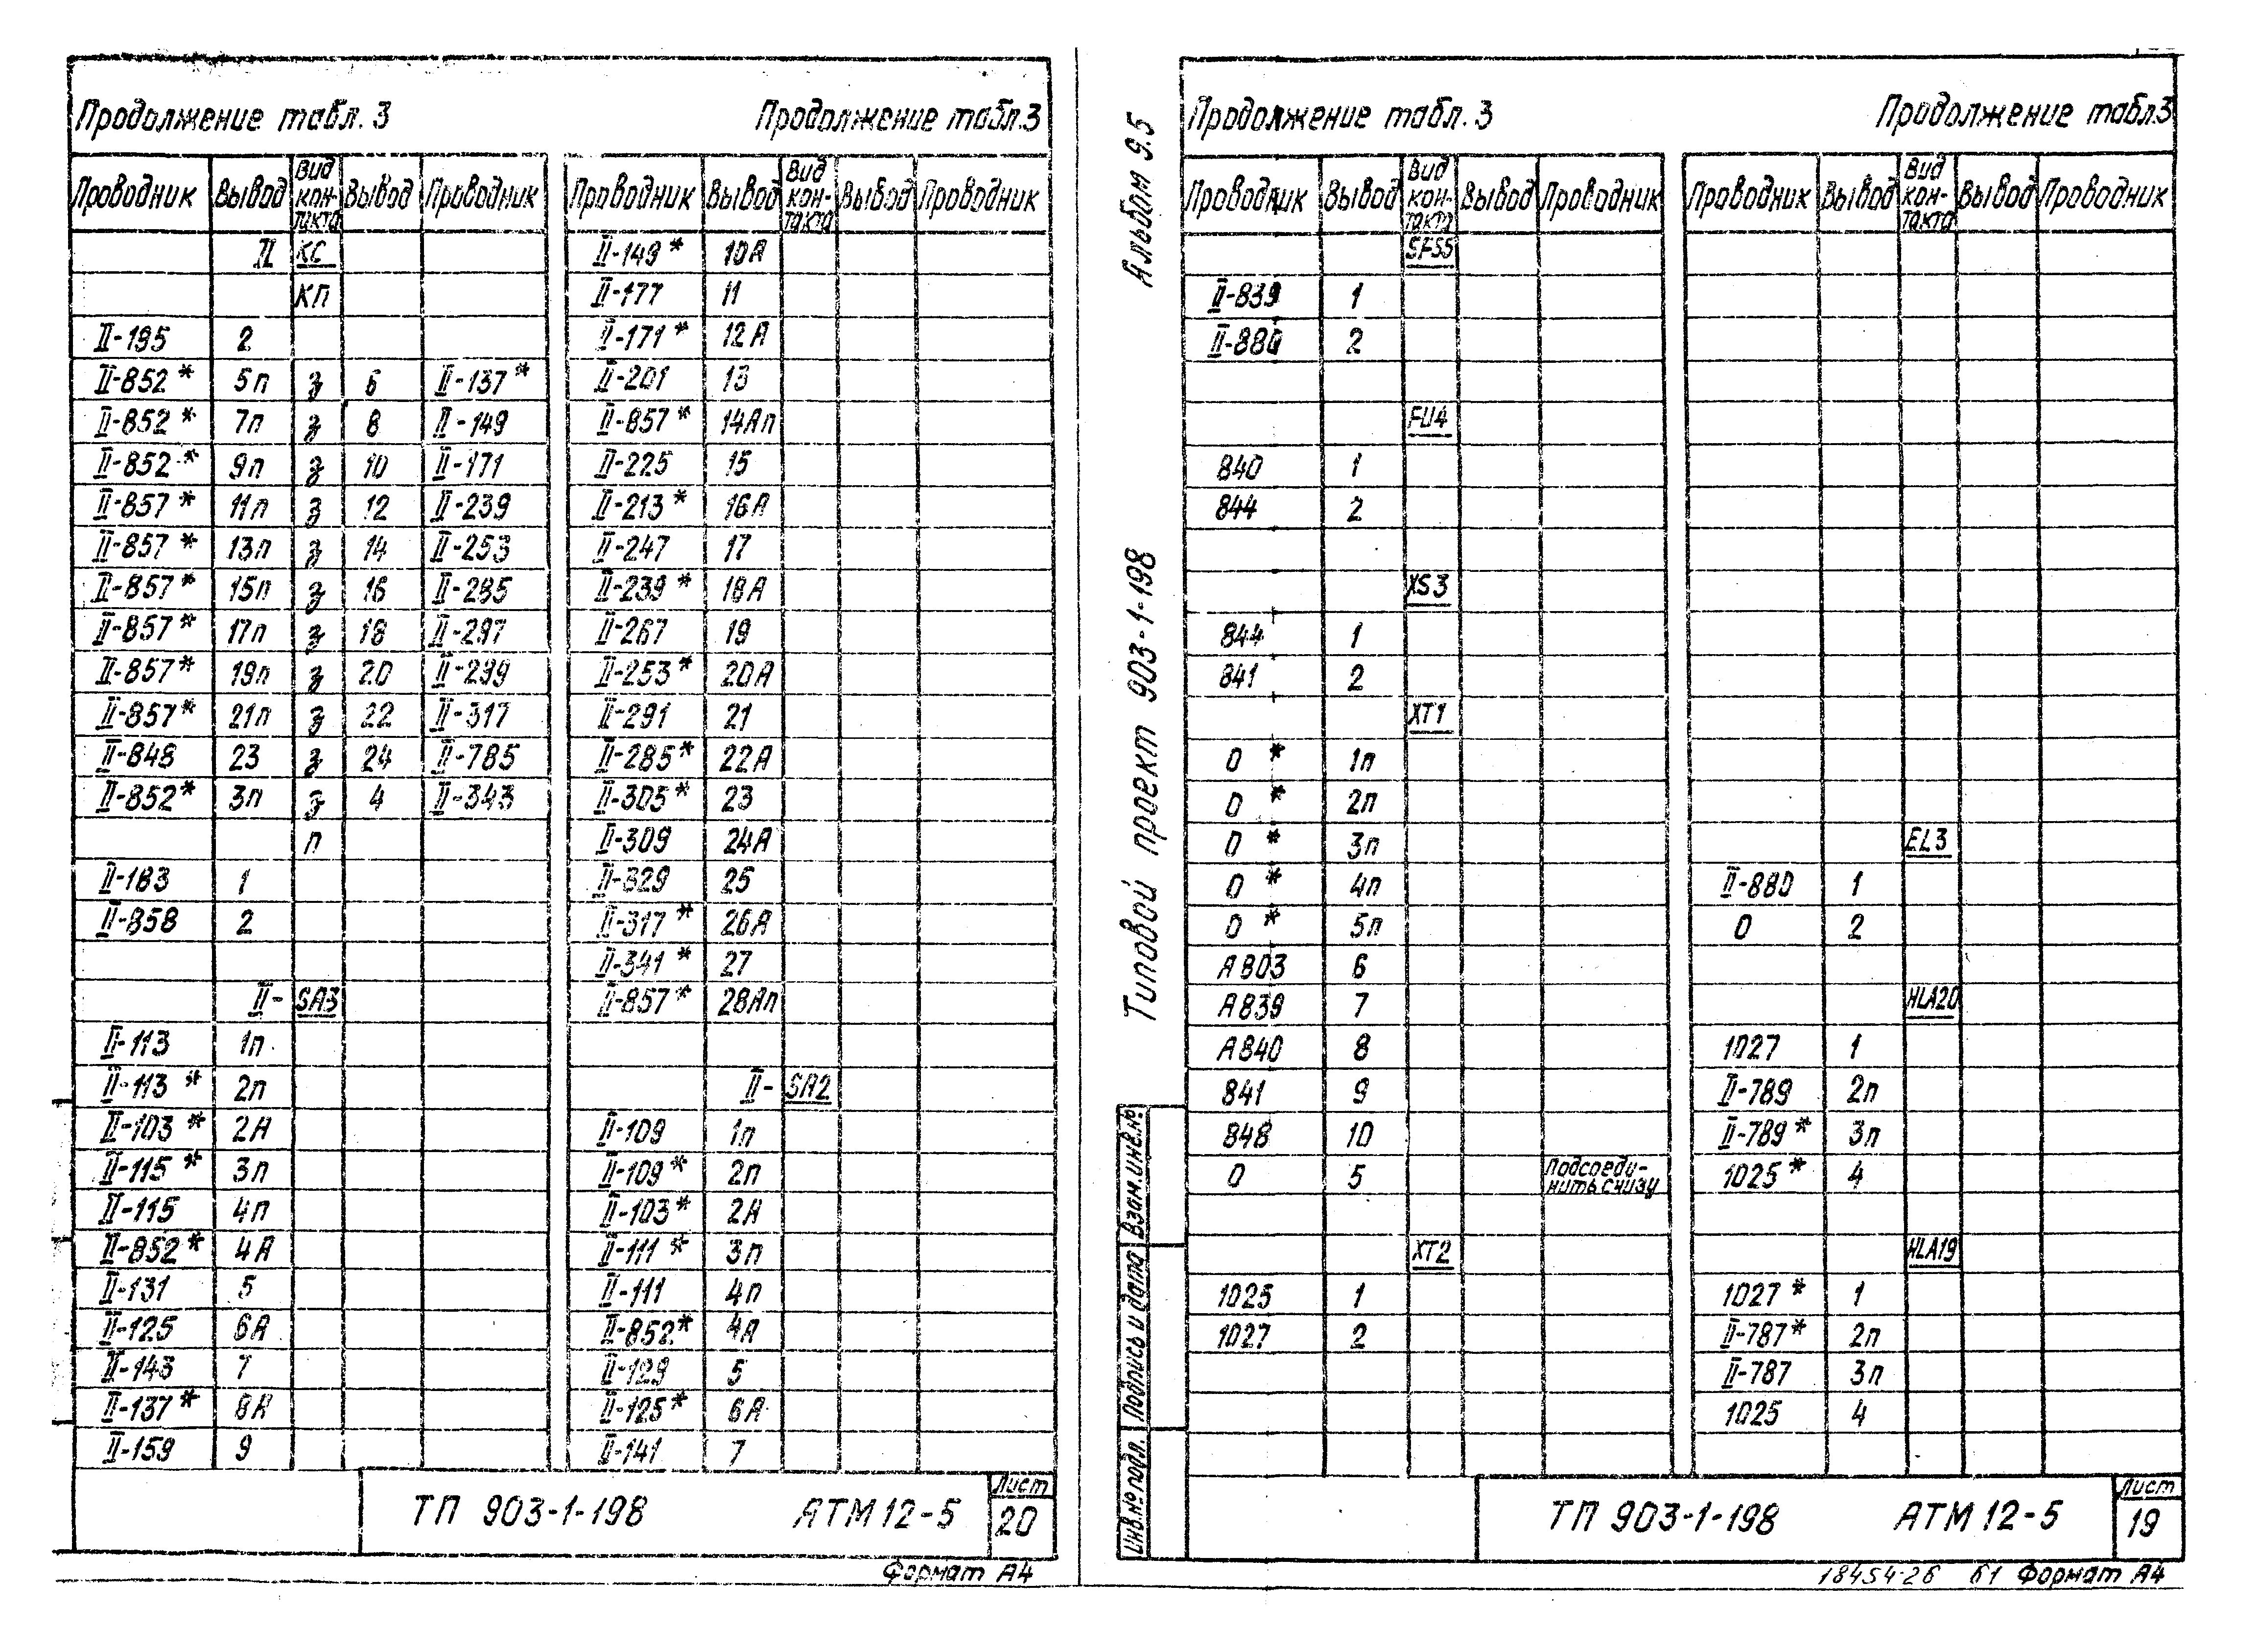 Продолжение табл. 3
Проводник Вывод Вид контакта Вывод Проводник
II КС
КП
II-195 2
II-852* 5п з 6 II-137*
II-852* 7п з 8 II-149
II-852* 9п з 10 II-171
II-857* 11п з 12 II-239
II-857* 13п з 14 II-253
II-857* 15п з 16 II-285
II-857* 17п з 18 II-297
II-857* 19п з 20 II-299
II-857* 21п з 22 II-317
II-848 23 з 24 II-785
II-852* 3п з 4 II-343
п
II-183 1
II-858 2
II- SA3
II-113 1п
II-113* 2п
II-103* 2А
II-115* 3п
II-115 4п
II-852* 4А
II-131 5
II-125 6А
II-143 7
II-137* 8А
II-159 9
Продолжение табл.3
Проводник Вывод Вид контакта Вывод Проводник
II-149* 10А
II-177 11
II-171* 12А
II-201 13
II-857* 14Ап
II-225 15
II-213* 16А
II-247 17
II-239* 18А
II-267 19
II-253* 20А
II-291 21
II-285* 22А
II-305* 23
II-309 24А
II-329 25
II-317* 26А
II-341* 27
II-857* 28Ап
II- SA2
II-109 1п
II-109* 2п
II-103* 2А
II-111* 3п
II-111 4п
II-852* 4А
II-129 5
II-125* 6А
II-141 7
ТП 903-1-198 АТМ12-5
Лист
20
Формат А4
Альбом 9.5
Типовой проект 903-1-198
Взам.инв.№
Подпись и дата
Инв.№ подл.
Продолжение табл. 3
Проводник Вывод Вид контакта Вывод Проводник
SF55
II-839 1
II-880 2
FU4
840 1
844 2
XS3
844 1
841 2
XT1
0 * 1п
0 * 2п
0 * 3п
0 * 4п
0 * 5п
А803 6
А839 7
А840 8
841 9
848 10
0 5 Подсоеди-
нить снизу
XT2
1025 1
1027 2
Продолжение табл.3
Проводник Вывод Вид контакта Вывод Проводник
EL3
II-880 1
0 2
HLA20
1027 1
II-789 2п
II-789* 3п
1025* 4
HLA19
1027* 1
II-787* 2п
II-787 3п
1025 4
ТП 903-1-198 АТМ12-5
Лист
19
18454-26 61 Формат А4